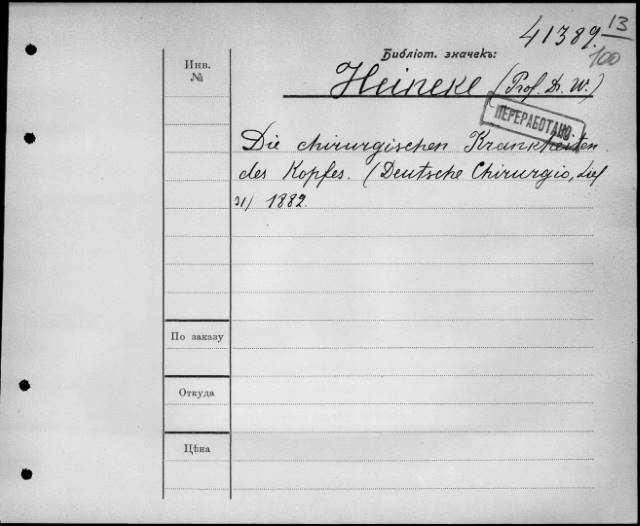 41389. 13/100
Библіот. значекъ:
Инв.
№
Heineke (Prof. Dr. W.)
ПЕРЕРАБОТАНО
Die chirurgischen Krankheiten
des Kopfes. (Deutsche Chirurgie, Lief
31) 1882.
По заказу
Откуда
Цѣна